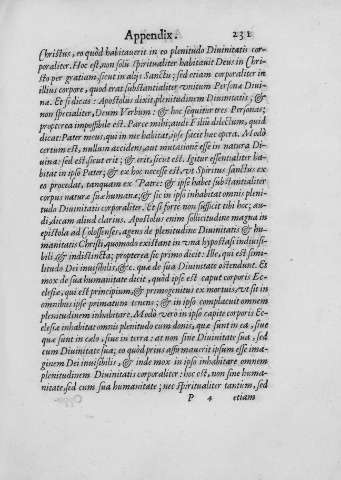 Appendix. 231
Christus, eo quòd habitauerit in eo plenitudo Diuinitatis cor-
poraliter. Hoc est, non solũ spiritualiter habitauit Deus in Chri-
sto per gratiam, sicut in alijs Sanctis; sed etiam corporaliter in
illius corpore, quod erat substantialiter vnitum Persona Diui-
na. Et si dicas: Apostolus dixit plenitudinem Diuinitatis, &
non specialiter, Deum Verbum: & hoc sequitur tres Personas;
propterea impossibile est. Parce mihi; audi Filiũ dilectum, quid
dicat: Pater meus, qui in me habitat, ipse facit hæc opera. Modò
certum est, nullum accidens, aut mutationẽ esse in natura Di-
uina: sed est, sicut erit; & erit, sicut est. Igitur essentialiter ha-
bitat in ipso Pater; & ex hoc necesse est, vt Spiritus sanctus ex
eo procedat, tanquam ex Patre: & ipse habet substantialiter
corpus naturæ suæ humanæ; & sic in ipso inhabitat omnis pleni-
tudo Diuinitatis corporaliter. Et si forte non sufficit tibi hoc; au-
di, dicam aliud clarius. Apostolus enim sollicitudine magna in
epistola ad Colossenses, agens de plenitudine Diuinitatis & hu-
manitatis Christi, quomodo existant in vna hypostasi indiuisi-
bili, & indistincta; propterea sic primo dicit: Ille, qui est simi-
litudo Dei inuisibilis, &c. quæ de sua Diuinitate ostendunt. Et
mox de sua humanitate dicit, quòd ipse est caput corporis Ec-
clesiæ, qui est principium, & primogenitus ex mortuis, vt sit in
omnibus ipse primatum tenens; & in ipso complacuit omnem
plenitudinem inhabitare. Modò verò in ipso capite corporis Ec-
clesiæ inhabitat omnis plenitudo cum donis, quæ sunt in ea, siue
quæ sunt in cælo, siue in terra: at non sine Diuinitate sua, sed
cum Diuinitate sua; eo quòd prius affirmauerit ipsum esse ima-
ginem Dei inuisibilis, & inde mox in ipso inhabitare omnem
plenitudinem Diuinitatis corporaliter: hoc est, non sine huma-
nitate, sed cum sua humanitate; nec spiritualiter tantum, sed
P 4 etiam